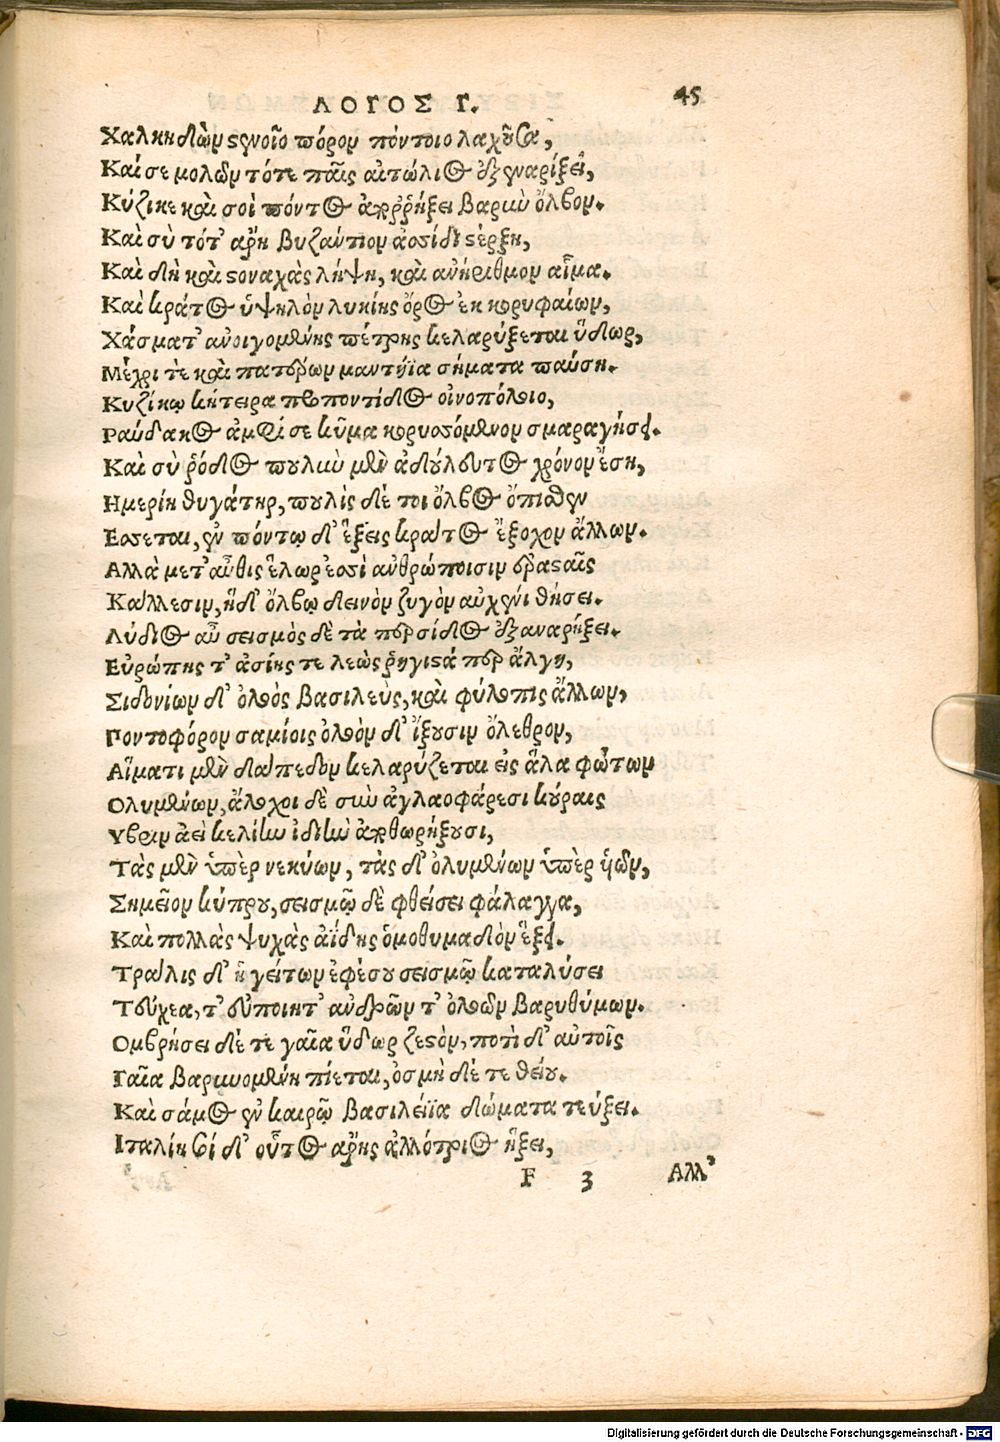 ΛΟΓΟΣ Γ. 45
Χαλκηδὼν στενοῖο πόρον πόντοιο λαχοῦσα,
Καί σε μολὼν τότε παῖς αἰτώλιος ἐξεναρίξει,
Κύζικε καὶ σοὶ πόντος ἀπορρήξει βαρὺν ὄλβον.
Καὶ σὺ τότ' ἄρη βυζάντιον ἀσσίδι στέρξῃ,
Καὶ δὴ καὶ στοναχὰς λήψῃ, καὶ ἀνήριθμον αἷμα.
Καὶ κράτος ὑψηλὸν λυκίης ὄρος ἐκ κορυφαίων,
Χάσματ' ἀνοιγομένης πέτρης κελαρύξεται ὕδωρ,
Μέχρι τὲ καὶ πατέρων μαντήϊα σήματα παύσῃ.
Κυζίκῳ κήτειρα προποντίδος οἰνοπόλοιο,
Ραύδακος ἀμφί σε κῦμα κορυσσόμενον σμαραγήσει.
Καὶ σὺ ῥόδος πουλὺν μὲν ἀδούλευτος χρόνον ἔσῃ,
Ημερίη θυγάτηρ, πουλὺς δέ τοι ὄλβος ὄπισθεν
Εσσεται, ἐν πόντῳ δ' ἕξεις κράτος ἔξοχον ἄλλων.
Αλλὰ μετ' αὖθις ἕλωρ ἐσσὶ ἀνθρώποισιν ἐρασταῖς
Κάλλεσιν, ἠδ' ὄλβῳ δεινὸν ζυγὸν αὐχένι θήσει.
Λύδιος αὖ σεισμὸς δὲ τὰ περσίδος ἐξαναρήξει.
Εὐρώπης τ' ἀσίης τε λεὼς ῥήγιστά περ ἄλγη,
Σιδονίων δ' ὀλοὸς βασιλεὺς, καὶ φύλοπις ἄλλων,
Ποντοφόρον σαμίοις ὀλοὸν δ' ἵξουσιν ὄλεθρον,
Αἵματι μὲν δάπεδον κελαρύζεται εἰς ἅλα φώτων
Ολυμένων, ἄλοχοι δὲ σὺν ἀγλαοφάρεσι κύραις
Υβριν ἀεὶ κελίην ἰδίην ἀποθωρήξουσι,
Τὰς μὲν ὑπὲρ νεκύων, τὰς δ' ὀλυμένων ὑπὲρ ἡῶν,
Σημεῖον κύπρου, σεισμῷ δὲ φθείσει φάλαγγα,
Καὶ πολλὰς ψυχὰς ἀΐδης ὁμοθυμαδὸν ἕξει.
Τράλις δ' ἡ γείτων ἐφέσου σεισμῷ καταλύσει
Τεύχεα, τ' εὐποιητ' ἀνδρῶν τ' ὀλοῶν βαρυθύμων.
Ομβρήσει δέ τε γαῖα ὕδωρ ζεστὸν, ποτὶ δ' αὐτοῖς
Γαῖα βαρυνομένη πίεται, ὀσμὴ δέ τε θείου.
Καὶ σάμος ἐν καιρῷ βασιλέϊα δώματα τεύξει.
Ιταλίη σοί δ' οὗτος ἄρης ἀλλότριος ἥξει,
F 3 Αλλ'